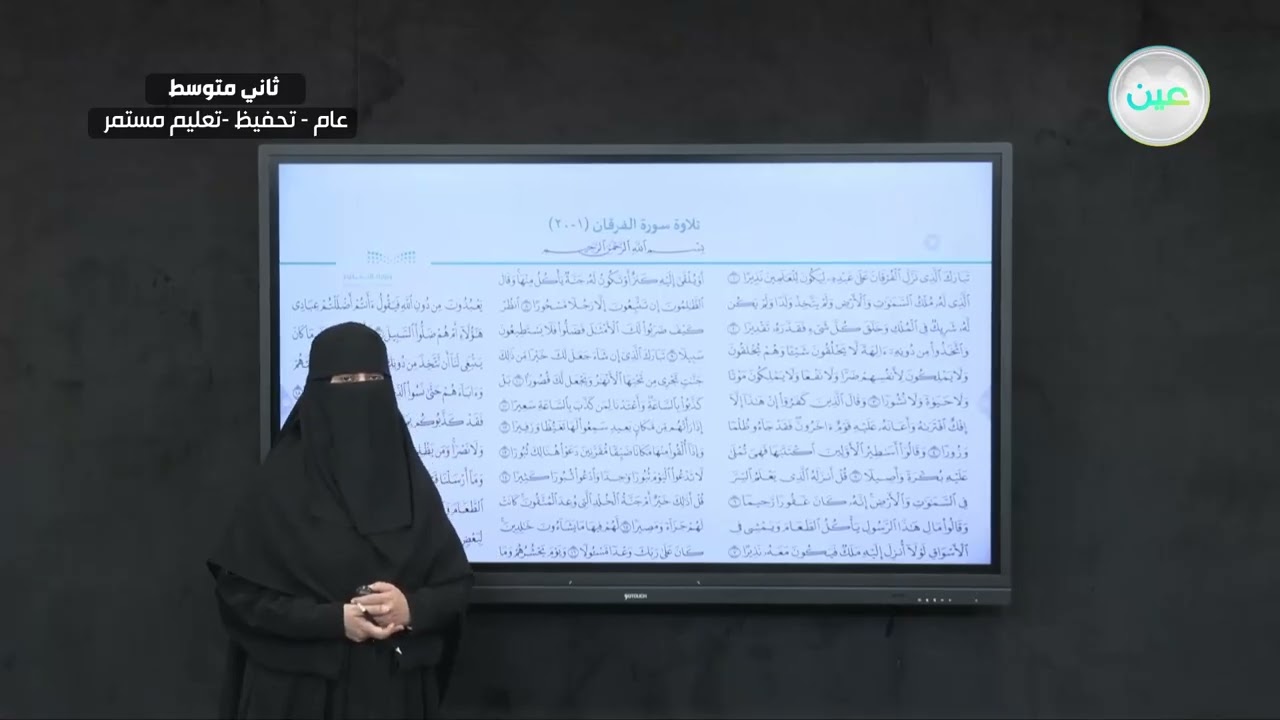 ثاني متوسط
عام - تحفيظ -تعليم مستمر
عين
تلاوة سورة الفرقان (١-٢٠)
بسم الله الرحمن الرحيم
تبارك الذى نزل الفرقان على عبده ليكون للعالمين نذيرا
الذى له ملك السموات والأرض ولم يتخذ ولدا ولم يكن
له شريك فى الملك وخلق كل شىء فقدره تقديرا
واتخذوا من دونه ءالهة لا يخلقون شيئا وهم يخلقون
ولا يملكون لأنفسهم ضرا ولا نفعا ولا يملكون موتا
ولا حيوة ولا نشورا وقال الذين كفروا إن هذا إلا
إفك افتريه وأعانه عليه قوم ءاخرون فقد جاءو ظلما
وزورا وقالوا أسطير الأولين اكتتبها فهى تملى
عليه بكرة وأصيلا قل أنزله الذى يعلم السر
فى السموات والأرض إنه كان غفورا رحيما
وقالوا مال هذا الرسول يأكل الطعام ويمشى فى
الأسواق لولا أنزل إليه ملك فيكون معه نذيرا
أو يلقى إليه كنز أو تكون له جنة يأكل منها وقال
الظلمون إن تتبعون إلا رجلا مسحورا انظر
كيف ضربوا لك الأمثل فضلوا فلا يستطيعون
سبيلا تبارك الذى إن شاء جعل لك خيرا من ذلك
جنت تجرى من تحتها الأنهر ويجعل لك قصورا بل
كذبوا بالساعة وأعتدنا لمن كذب بالساعة سعيرا
إذا رأتهم من مكان بعيد سمعوا لها تغيظا وزفيرا
وإذا ألقوا منها مكانا ضيقا مقرنين دعوا هنالك ثبورا
لا تدعوا اليوم ثبورا وحدا وادعوا ثبورا كثيرا
قل أذلك خير أم جنة الخلد التى وعد المتقون كانت
لهم جزاء ومصيرا لهم فيها ما يشاءون خلدين
كان على ربك وعدا مسئولا ويوم يحشرهم وما
يعبدون من دون الله فيقول ءأنتم أضللتم عبادى
هؤلاء أم هم ضلوا السبيل ما كان
ينبغى لنا أن نتخذ من
وءاباءهم حتى نسوا
فقد كذبوكم
ولا نصرا ومن
وما أرسلنا
الطعام
لبعض